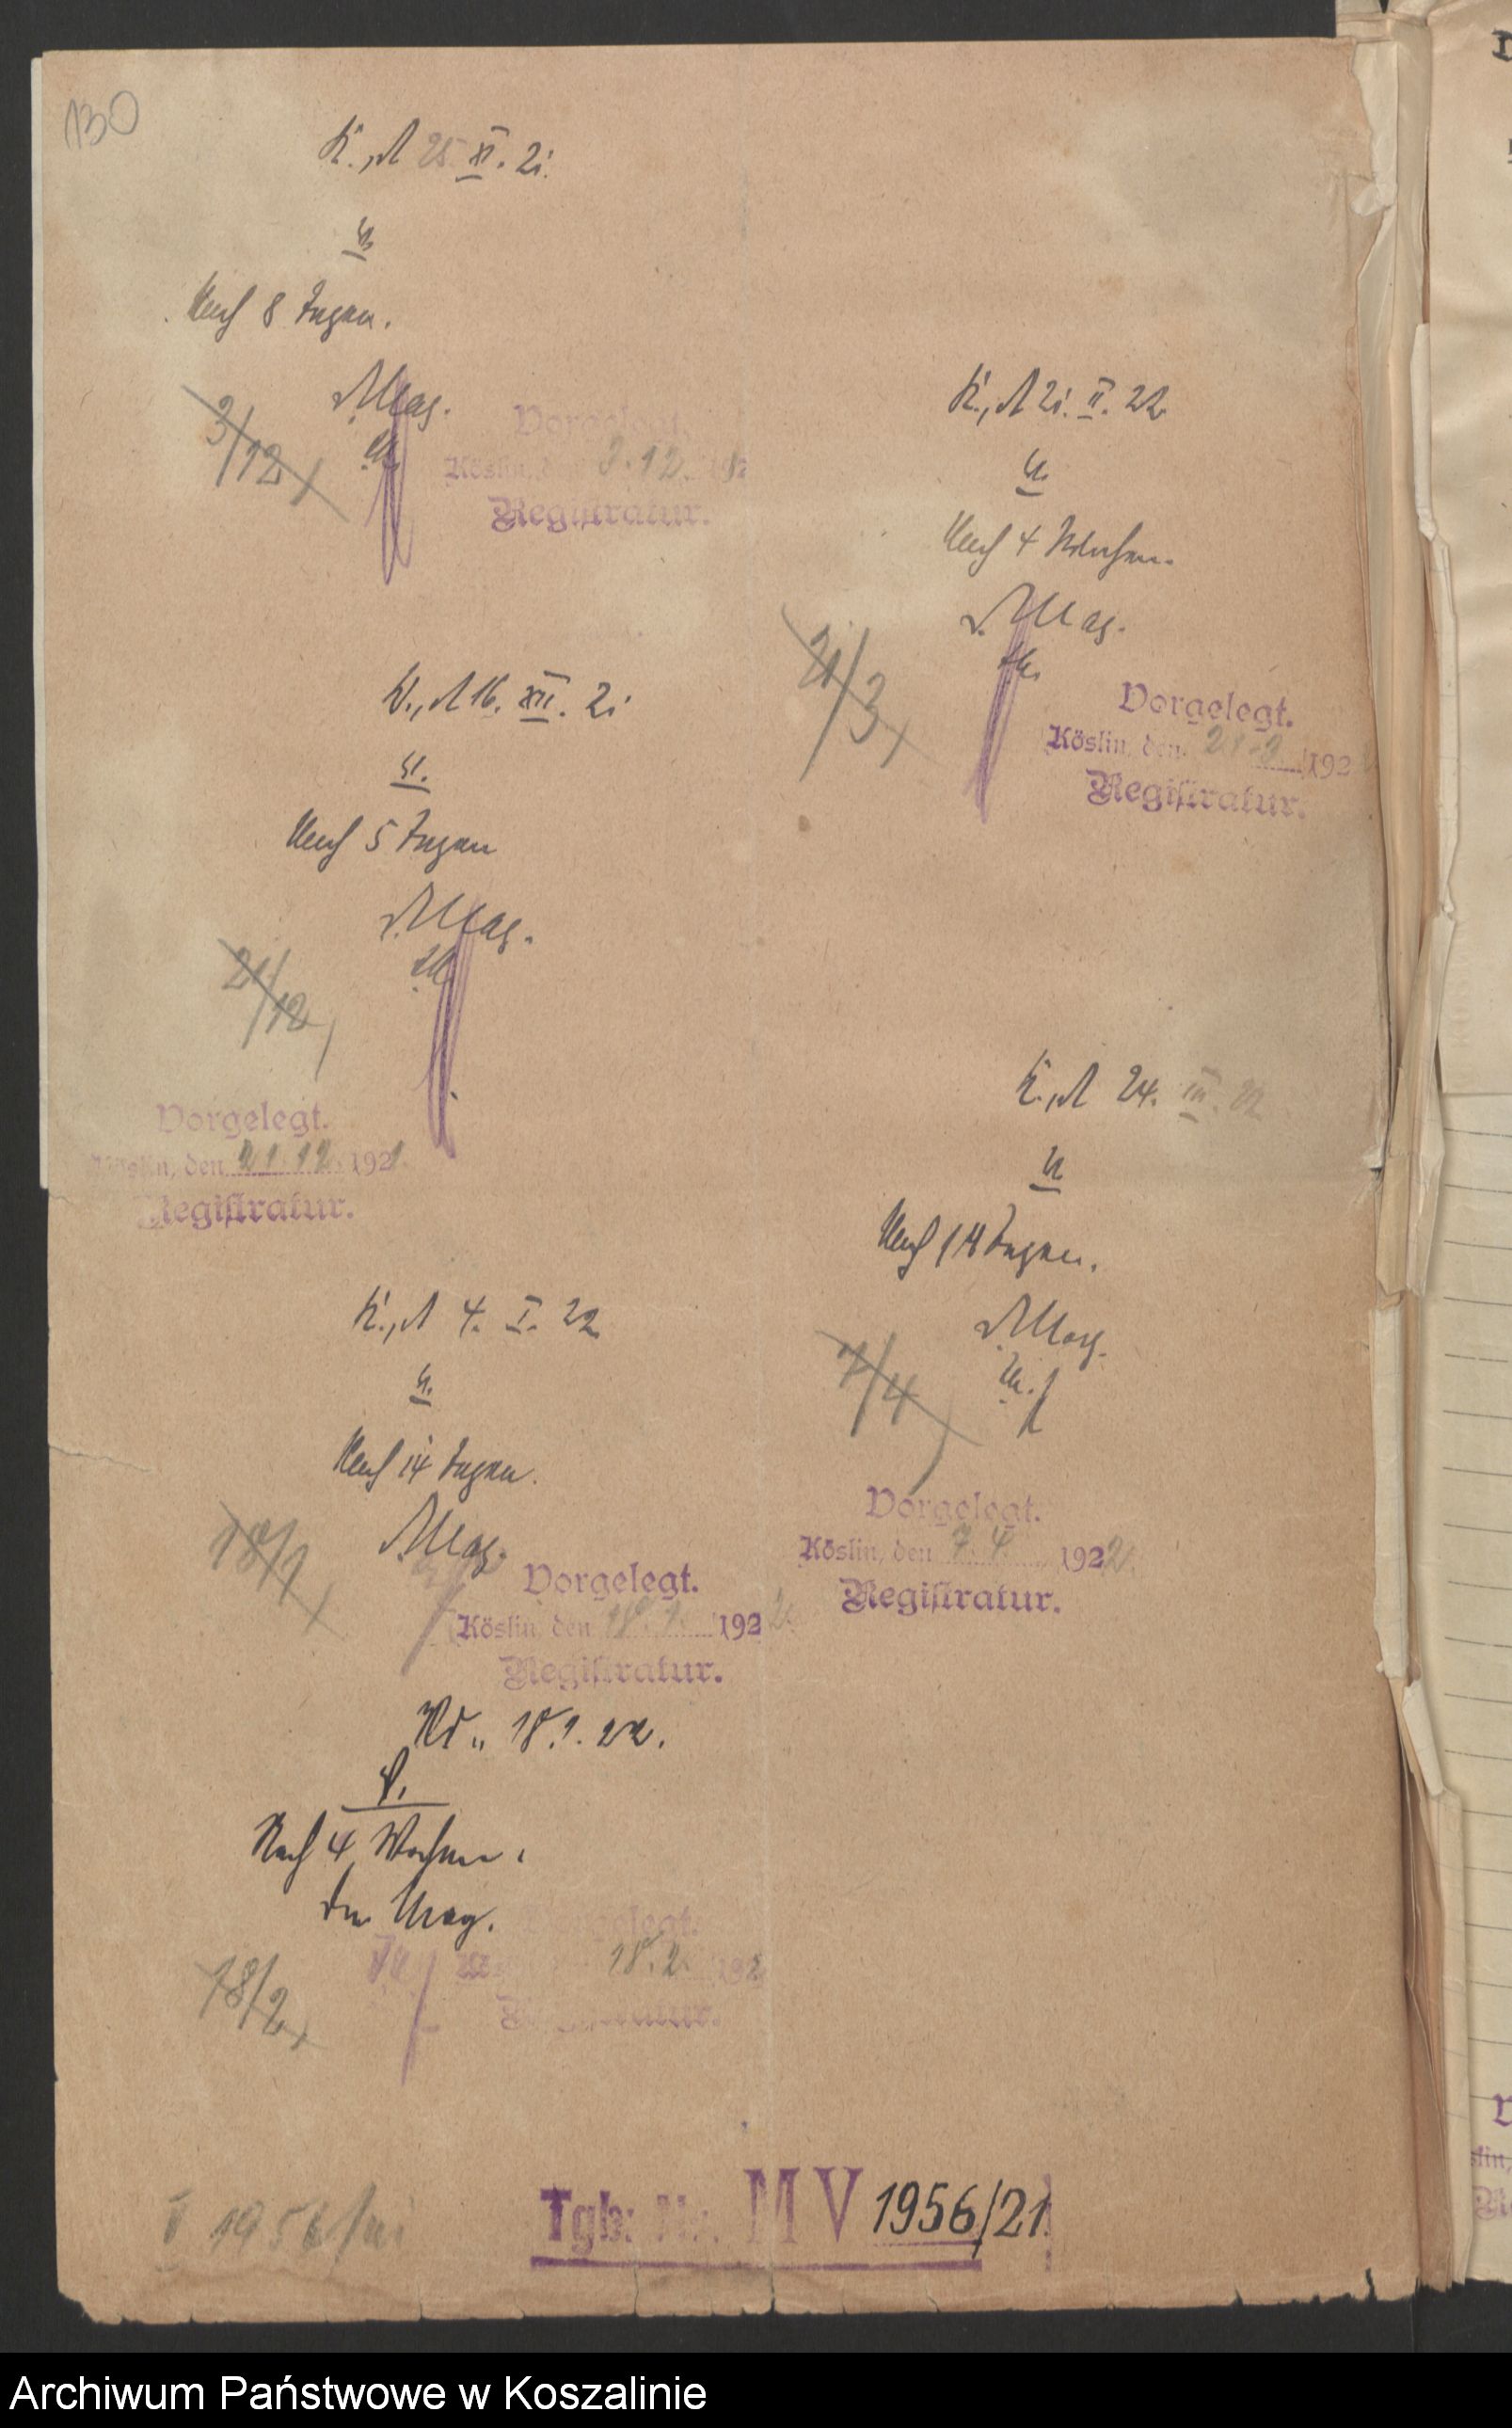 130
K., d 25. XI. 21.
Nach 8 Tagen.
d. Mag.
3/12
Vorgelegt.
Köslin, den 3.12. 192
Registratur.
K., d 16. XII. 21
Nach 5 Tagen
d. Mag.
21/12
Vorgelegt.
Köslin, den 21.12. 1921.
Registratur.
K., d 4. I. 22
Nach 14 Tagen.
d. Mag.
18/1
Vorgelegt.
Köslin, den 18.1. 1922
Registratur.
18.1.22.
Nach 4 Wochen.
Der Mag.
18/2
Vorgelegt.
18.2. 192
Registratur.
K., d 21. II. 22
Nach 4 Wochen.
d. Mag.
21/3
Vorgelegt.
Köslin, den 21.3 192
Registratur.
K., d 24. III. 22
Nach 14 Tagen.
d. Mag.
7/4
Vorgelegt.
Köslin, den 7.4. 1922.
Registratur.
V 1956/21
Tgb. Nr. M V 1956/21
Archiwum Państwowe w Koszalinie